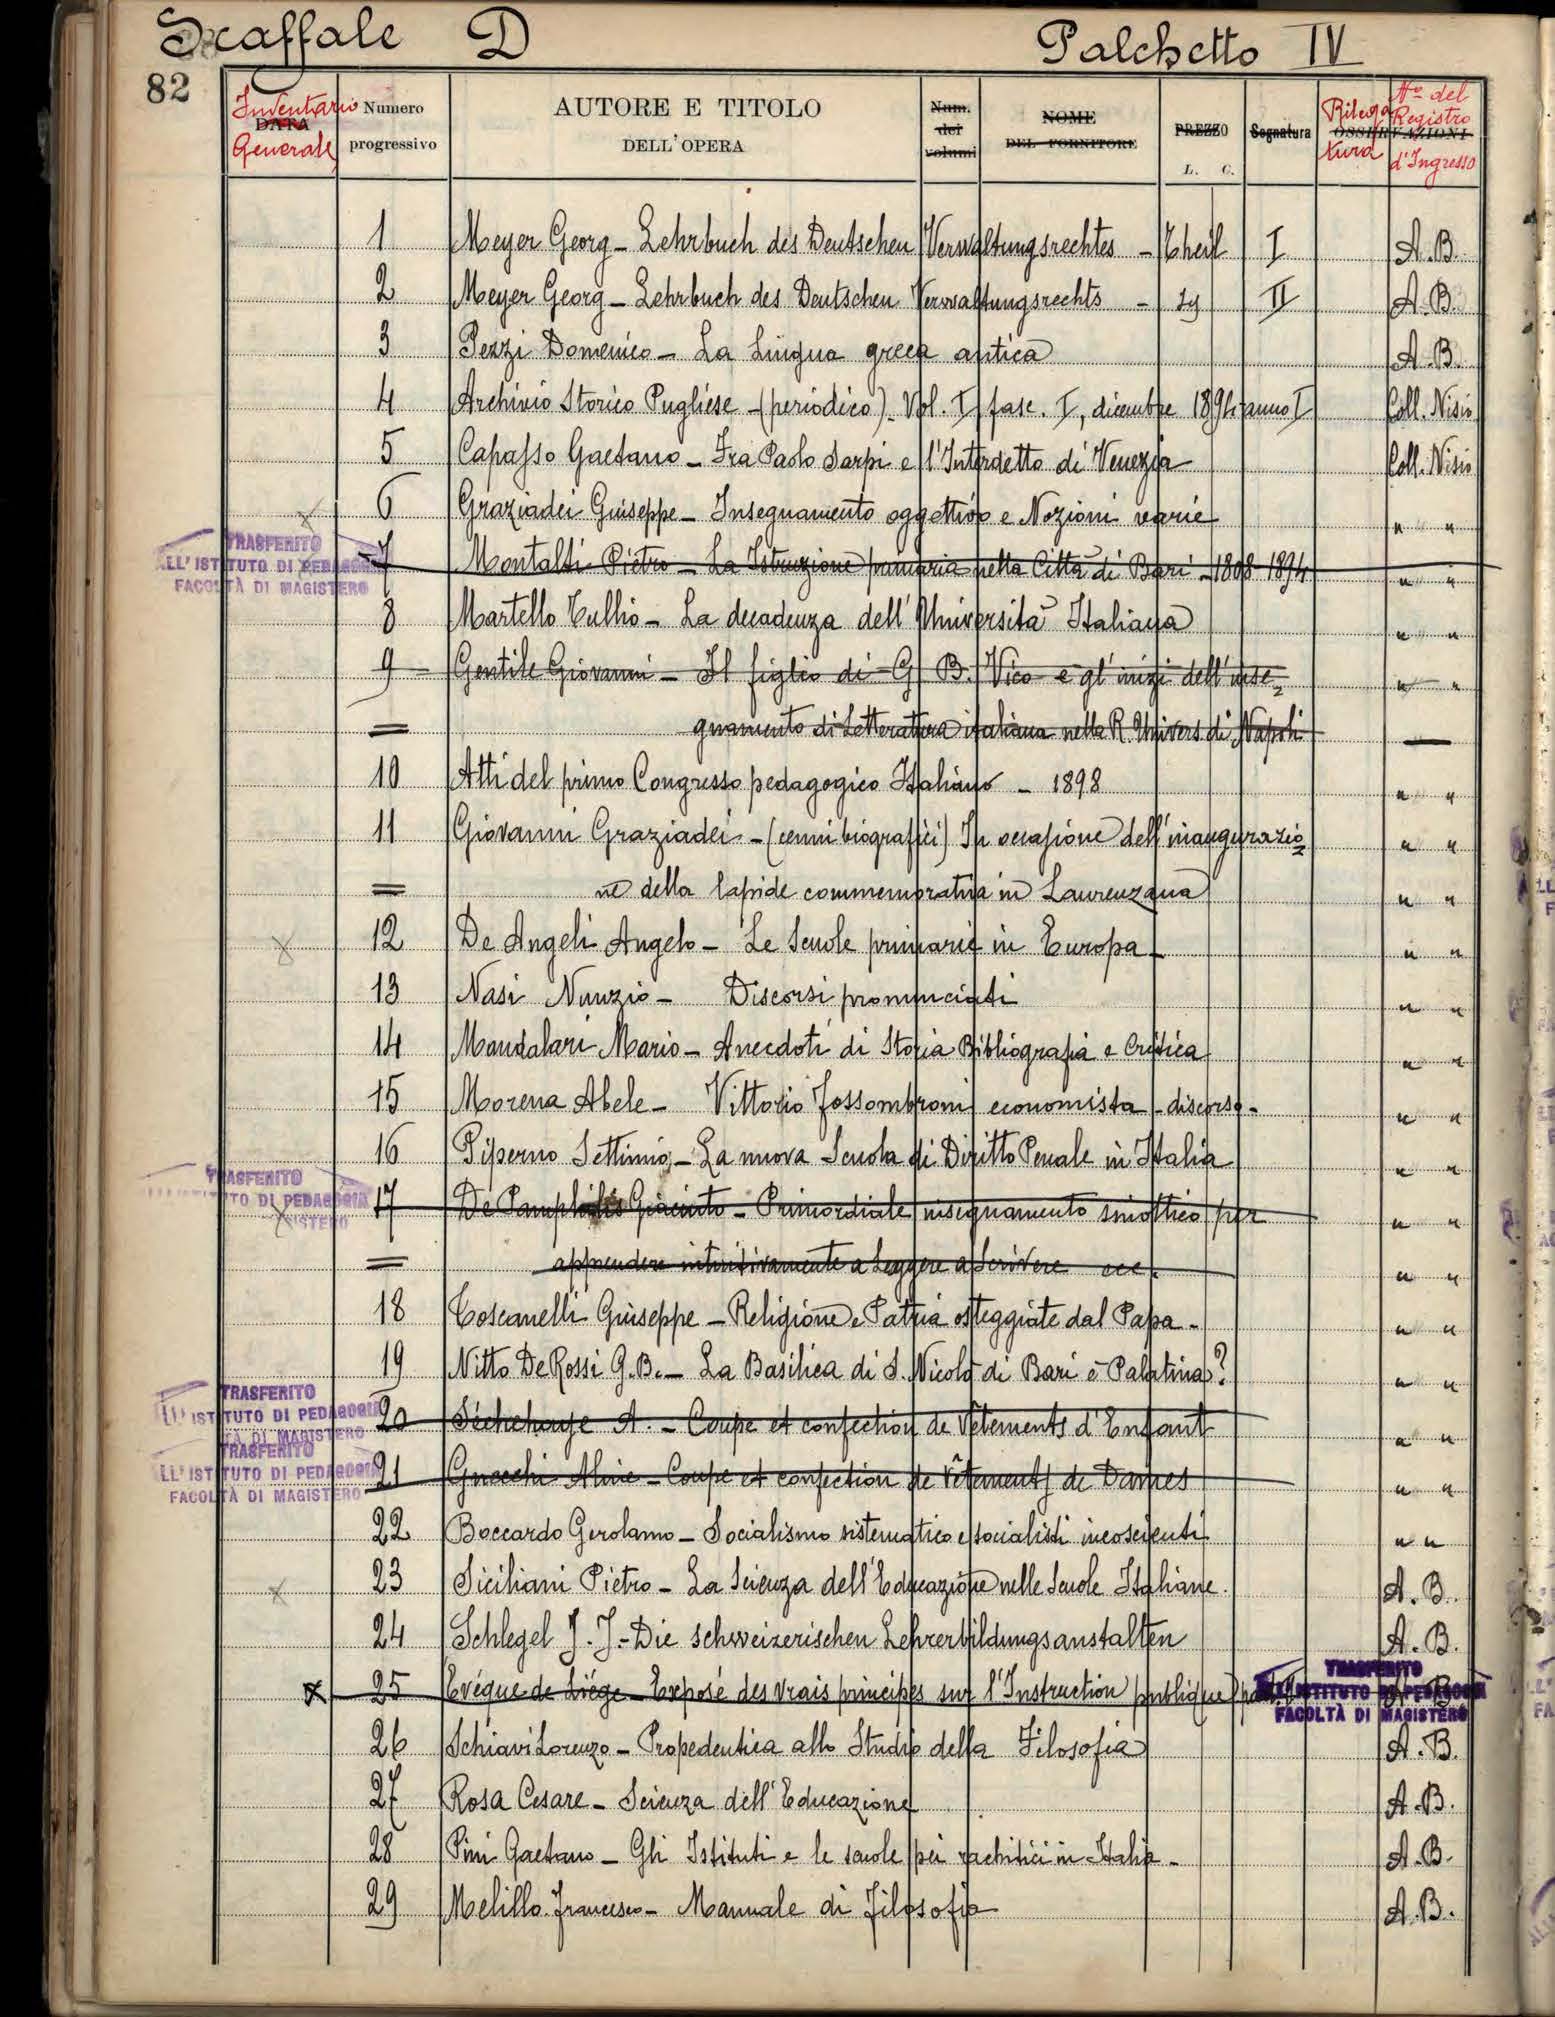 Scaffale D Palchetto IV
82
Inventario Generale DATA Numero progressivo AUTORE E TITOLO DELL'OPERA Num. dei volumi NOME DEL FORNITORE PREZZO L. C. Segnatura Rilegatura OSSERVAZIONI Nº del Registro d'Ingresso
1 Meyer Georg – Lehrbuch des Deutschen Verwaltungsrechtes – Theil I A.B.
2 Meyer Georg – Lehrbuch des Deutschen Verwaltungsrechts – II A.B.
3 Pezzi Domenico – La Lingua greca antica A.B.
4 Archivio Storico Pugliese – (periodico). Vol. I, fasc. I, dicembre 1894 anno I Coll. Nisio
5 Capasso Gaetano – Fra Paolo Sarpi e l'Interdetto di Venezia Coll. Nisio
6 Graziadei Giuseppe – Insegnamento oggettivo e Nozioni varie " "
TRASFERITO
ALL'ISTITUTO DI PEDAGOGIA
FACOLTÀ DI MAGISTERO
7 Montalti Pietro – La Istruzione primaria nella Città di Bari – 1808-1894 " "
8 Martello Tullio – La decadenza dell'Università Italiana " "
9 Gentile Giovanni – Il figlio di G. B. Vico e gl'inizi dell'inse=
= gnamento di Letteratura italiana nella R. Univers. di Napoli —
10 Atti del primo Congresso pedagogico Italiano – 1898 " "
11 Giovanni Graziadei – (cenni biografici) In occasione dell'inaugurazio= " "
= ne della lapide commemorativa in Laurenzana " "
12 De Angeli Angelo – Le Scuole primarie in Europa – " "
13 Nasi Nunzio – Discorsi pronunciati " "
14 Mandalari Mario – Anecdoti di Storia Bibliografia e Critica " "
15 Morena Abele – Vittorio Fossombroni economista – discorso – " "
16 Piperno Settimio – La nuova Scuola di Diritto Penale in Italia " "
TRASFERITO
ALL'ISTITUTO DI PEDAGOGIA
MAGISTERO
17 De Pamphilis Giacinto – Primordiale insegnamento sinottico per " "
= apprendere intuitivamente a Leggere a Scrivere ecc. " "
18 Toscanelli Giuseppe – Religione e Patria osteggiate dal Papa – " "
19 Nitto De Rossi G.B. – La Basilica di S. Nicolò di Bari è Palatina? " "
TRASFERITO
ALL'ISTITUTO DI PEDAGOGIA
FACOLTÀ DI MAGISTERO
20 Séchehaye A. – Coupe et confection de Vêtements d'Enfant " "
TRASFERITO
ALL'ISTITUTO DI PEDAGOGIA
FACOLTÀ DI MAGISTERO
21 Coupe et confection de Vêtements de Dames " "
22 Boccardo Gerolamo – Socialismo sistematico e socialisti incoscienti " "
23 Siciliani Pietro – La Scienza dell'Educazione nelle Scuole Italiane. A.B.
24 Schlegel J. J. – Die schweizerischen Lehrerbildungsanstalten A.B.
25 Evéque de Liége – Exposé des vrais principes sur l'Instruction publique
TRASFERITO
ALL'ISTITUTO DI PEDAGOGIA
FACOLTÀ DI MAGISTERO
26 Schiavi Lorenzo – Propedeutica allo Studio della Filosofia A.B.
27 Rosa Cesare – Scienza dell'Educazione A.B.
28 Pini Gaetano – Gli Istituti e le scuole pei rachitici in Italia – A.B.
29 Melillo Francesco – Manuale di Filosofia A.B.